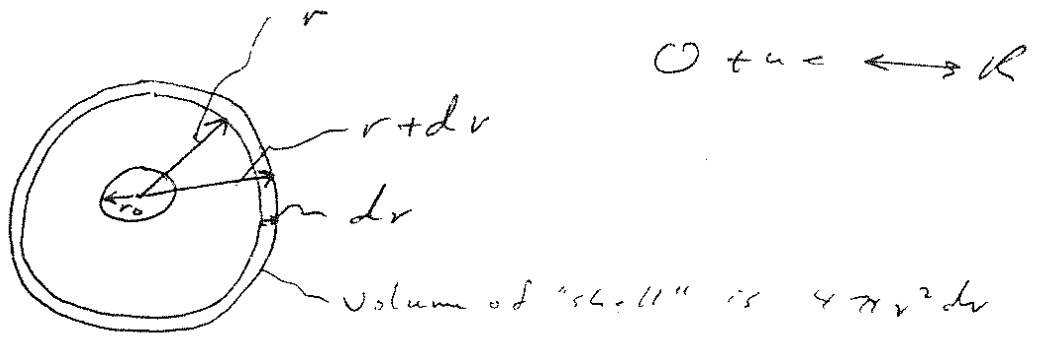 r
r + dr
dr
r₀
Volume of "shell" is 4πr²dr